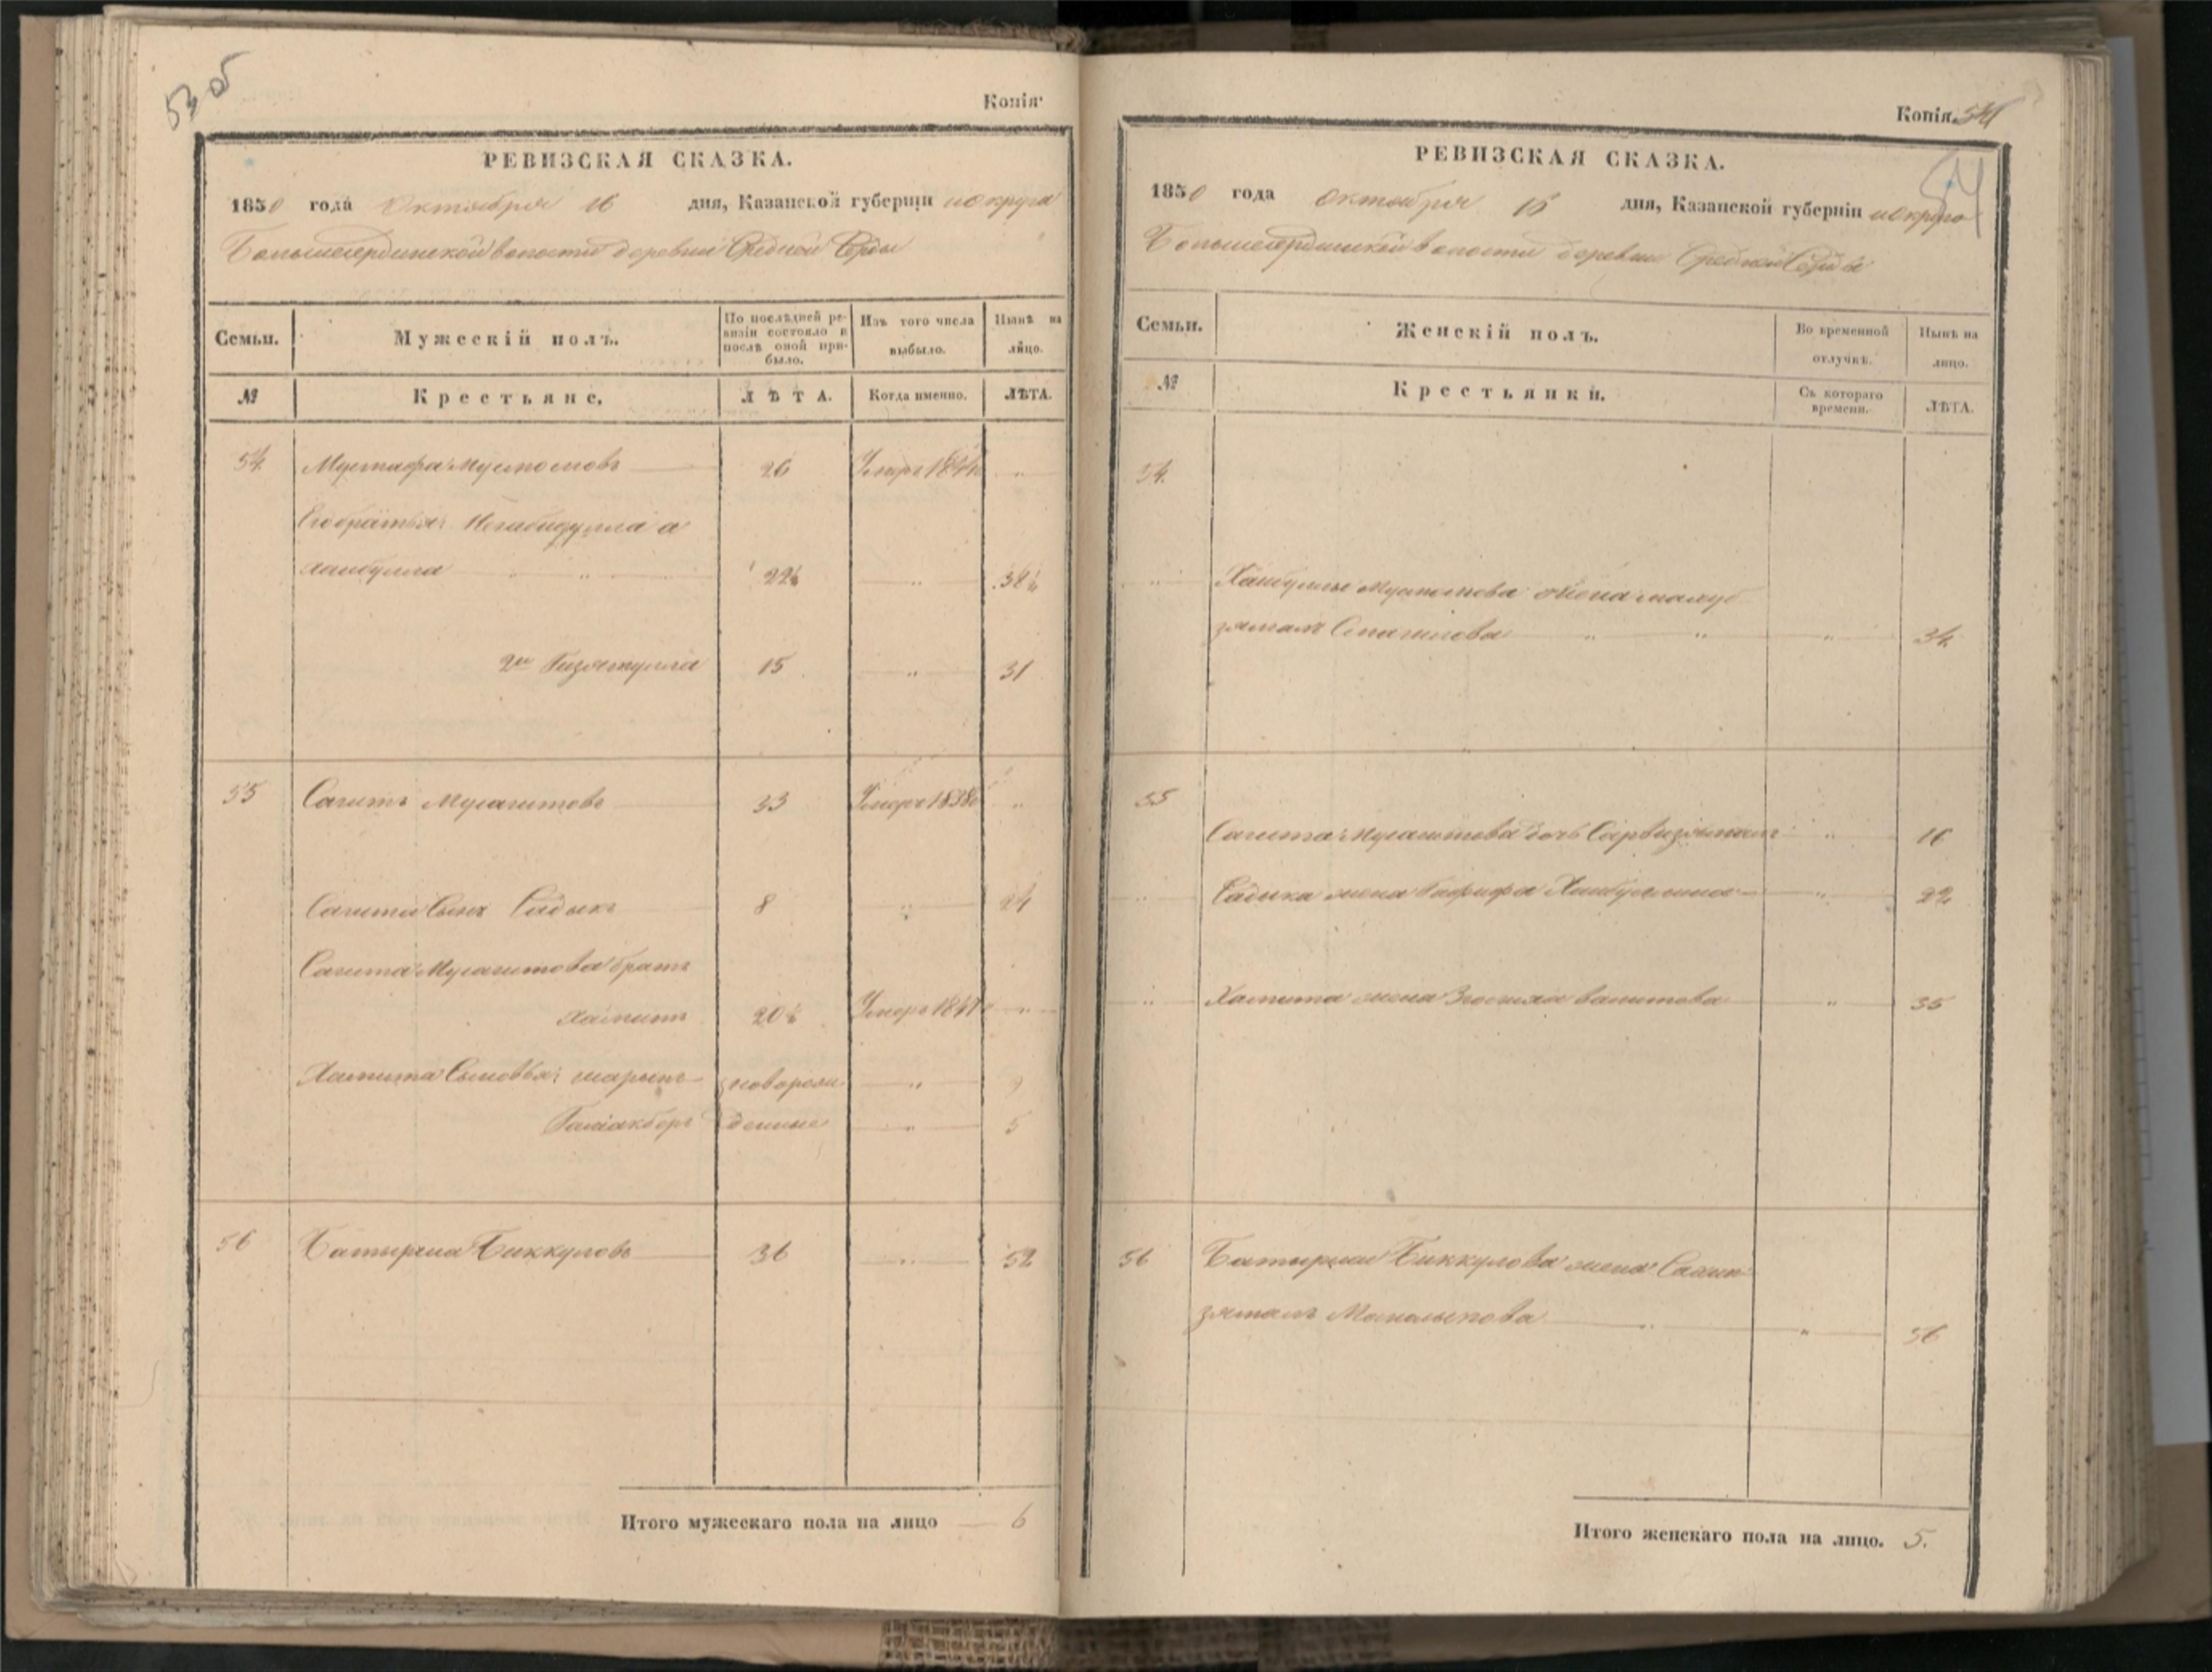 53 об
Копія
РЕВИЗСКАЯ СКАЗКА.
1850 года Октября 16 дня, Казанской губерніи и округа
Большесердинской волости деревни Средней Серды
Семьи.
Мужескій полъ.
По послѣдней ре-
визіи состояло и
послѣ оной при-
было.
Изъ того числа
выбыло.
Нынѣ на
лицо.
№
Крестьяне.
ЛѢТА.
Когда именно.
ЛѢТА.
54. Мустафа 26 Умеръ "
Его братья:
хаибулла " " 22½ " 38½
2й Гизятулла 15 " 31
55 Сагитъ Мусагитовъ 33 Умеръ 1838 "
Сагита Сынъ Садыкъ 8 " 24
Сагита Мусагитова братъ
Хамитъ 20½ Умеръ "
Хамита Сыновья: шарыпъ новорож " 9
Галиакберъ денные " 5
56 Батырша Биккуловъ 36 " 52
Итого мужескаго пола на лицо 6
Копія. 54
54
РЕВИЗСКАЯ СКАЗКА.
1850 года октября 16 дня, Казанской губерніи и округа
Большесердинской волости деревни Средней Серды
Семьи.
Женскій полъ.
Во временной
отлучкѣ.
Нынѣ на
лицо.
№
Крестьянки.
Съ котораго
времени.
ЛѢТА.
54.
" Хаибуллы жена махуб
зямалъ " " " 34.
55
Сагита Мусагитова дочь Сарвизямалъ " 16
" Садыка жена Гафифа Хаибуллина " 22
" Хамита жена вагитова " 35
56 Батырши Биккулова жена
зямалъ " " 56
Итого женскаго пола на лицо. 5.